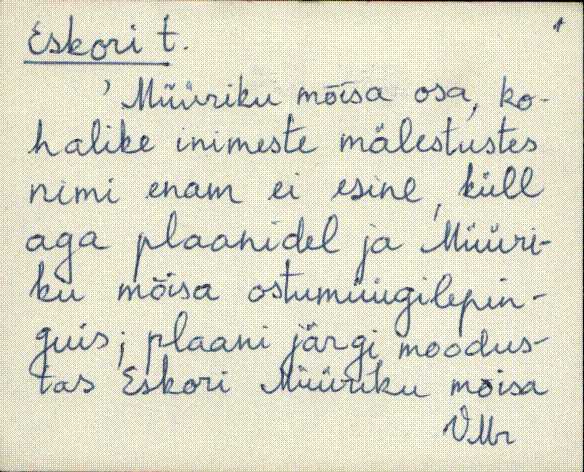 Eskori t.
'Müüriku mõisa osa, ko-
halike inimeste mälestustes
nimi enam ei esine, küll
aga plaanidel ja Müüri-
ku mõisa ostumüügilepin-
guis; plaani järgi moodus-
tas Eskori Müüriku mõisa
VMr